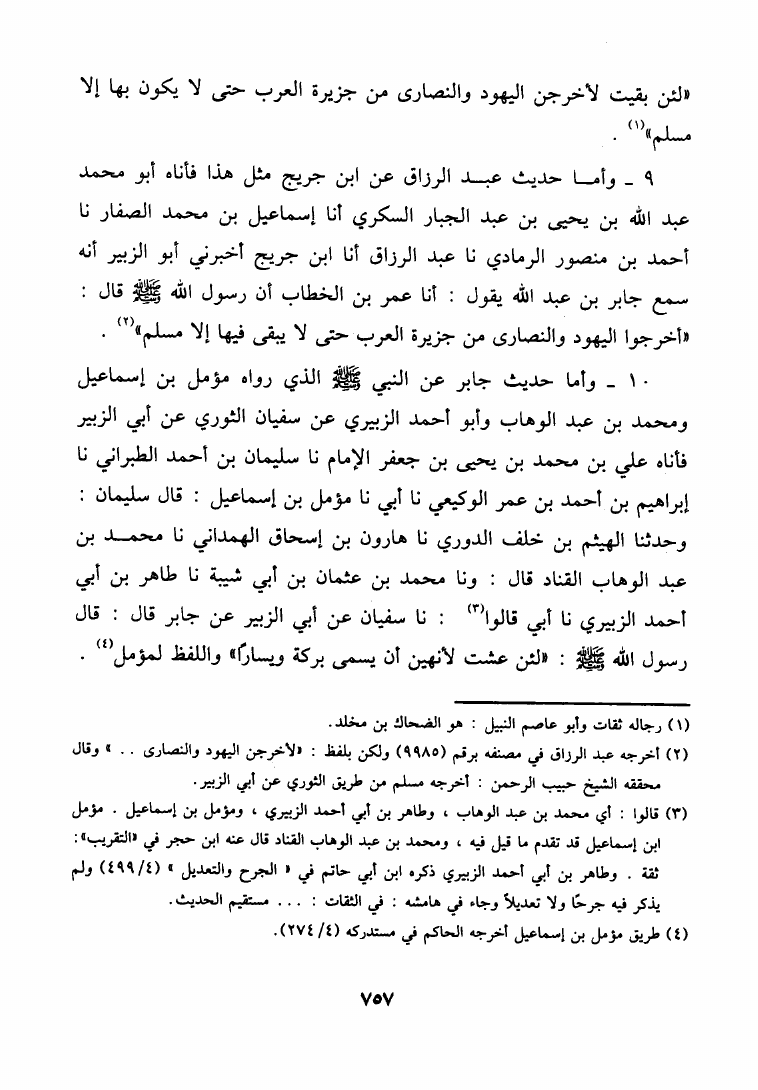 «لئن بقيت لأخرجن اليهود والنصارى من جزيرة العرب حتى لا يكون بها إلا
مسلم»(١) .
٩ ـ وأمـا حديث عبـد الرزاق عن ابن جريج مثل هذا فأناه أبو محمد
عبد الله بن يحيى بن عبد الجبار السكري أنا إسماعيل بن محمد الصفار نا
أحمد بن منصور الرمادي نا عبد الرزاق أنا ابن جريج أخبرني أبو الزبير أنه
سمع جابر بن عبد الله يقول : أنا عمر بن الخطاب أن رسول الله ﷺ قال :
«أخرجوا اليهود والنصارى من جزيرة العرب حتى لا يبقى فيها إلا مسلم»(٢) .
١٠ ـ وأما حديث جابر عن النبي ﷺ الذي رواه مؤمل بن إسماعيل
ومحمد بن عبد الوهاب وأبو أحمد الزبيري عن سفيان الثوري عن أبي الزبير
فأناه علي بن محمد بن يحيى بن جعفر الإمام نا سليمان بن أحمد الطبراني نا
إبراهيم بن أحمد بن عمر الوكيعي نا أبي نا مؤمل بن إسماعيل : قال سليمان :
وحدثنا الهيثم بن خلف الدوري نا هارون بن إسحاق الهمداني نا محمـد بن
عبد الوهاب القناد قال : ونا محمد بن عثمان بن أبي شيبة نا طاهر بن أبي
أحمد الزبيري نا أبي قالوا(٣) : نا سفيان عن أبي الزبير عن جابر قال : قال
رسول الله ﷺ : «لئن عشت لأنهين أن يسمى بركة ويسارًا» واللفظ لمؤمل(٤) .
(١) رجاله ثقات وأبو عاصم النبيل : هو الضحاك بن مخلد.
(٢) أخرجه عبد الرزاق في مصنفه برقم (٩٩٨٥) ولكن بلفظ : «لأخرجن اليهود والنصارى . . » وقال
محققه الشيخ حبيب الرحمن : أخرجه مسلم من طريق الثوري عن أبي الزبير.
(٣) قالوا : أي محمد بن عبد الوهاب ، وطاهر بن أبي أحمد الزبيري ، ومؤمل بن إسماعيل . مؤمل
ابن إسماعيل قد تقدم ما قيل فيه ، ومحمد بن عبد الوهاب القناد قال عنه ابن حجر في «التقريب»:
ثقة . وطاهر بن أبي أحمد الزبيري ذكره ابن أبي حاتم في « الجرح والتعديل » (٤٩٩/٤) ولم
يذكر فيه جرحًا ولا تعديلاً وجاء في هامشه : في الثقات : . . . مستقيم الحديث.
(٤) طريق مؤمل بن إسماعيل أخرجه الحاكم في مستدركه (٢٧٤/٤).
٧٥٧